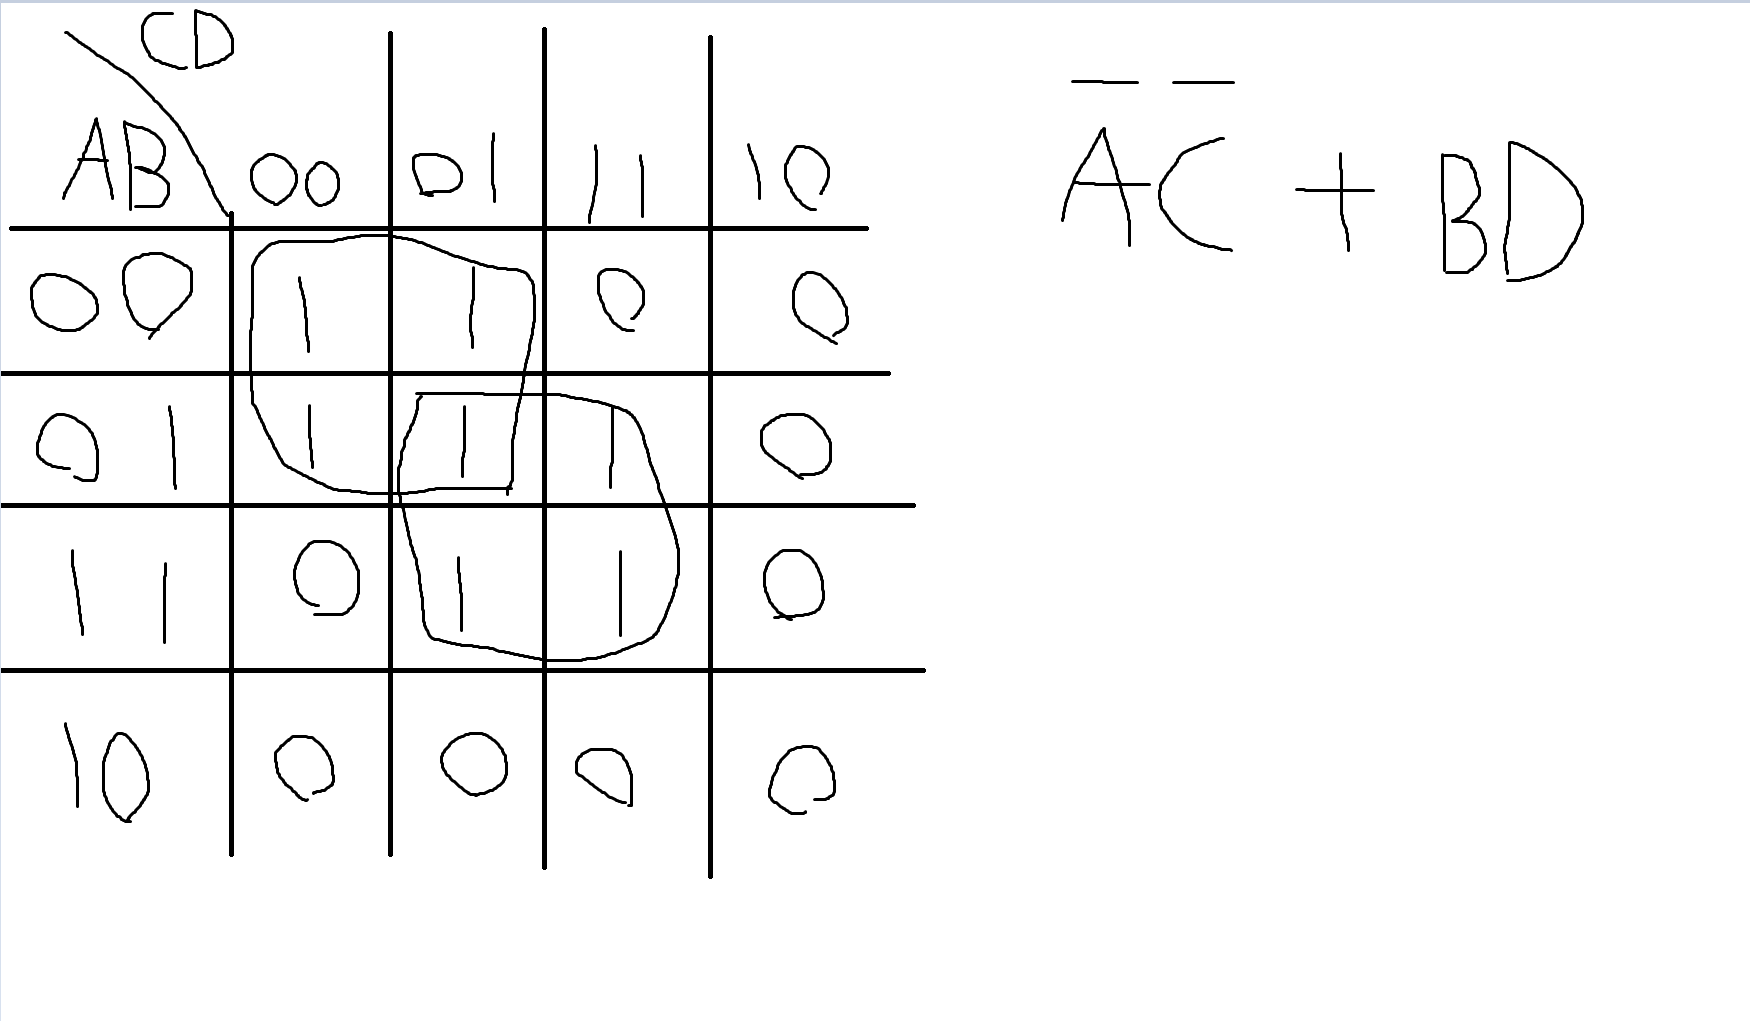 CD
AB 00 01 11 10
00 1 1 0 0
01 1 1 1 0
11 0 1 1 0
10 0 0 0 0
A̅C̅ + BD